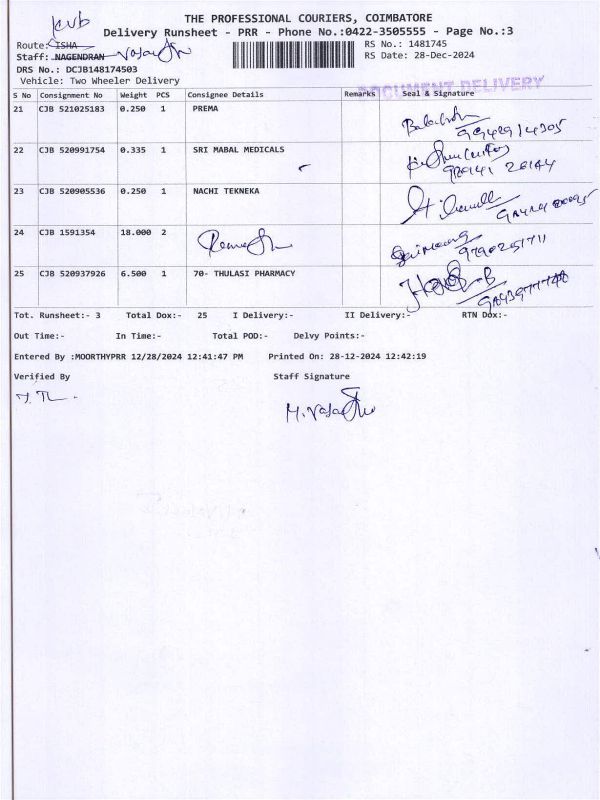 THE PROFESSIONAL COURIERS, COIMBATORE
KVB
Delivery Runsheet - PRR - Phone No.:0422-3505555 - Page No.:3
Route: ISHA
RS No.: 1481745
Staff: NAGENDRAN
RS Date: 28-Dec-2024
DRS No.: DCJB148174503
Vehicle: Two Wheeler Delivery
DOCUMENT DELIVERY
S No Consignment No Weight PCS Consignee Details Remarks Seal & Signature
21 CJB 521025183 0.250 1 PREMA
22 CJB 520991754 0.335 1 SRI MABAL MEDICALS
23 CJB 520905536 0.250 1 NACHI TEKNEKA
24 CJB 1591354 18.000 2
9790251711
25 CJB 520937926 6.500 1 70- THULASI PHARMACY
Tot. Runsheet:- 3 Total Dox:- 25 I Delivery:- II Delivery:- RTN Dox:-
Out Time:- In Time:- Total POD:- Delvy Points:-
Entered By :MOORTHYPRR 12/28/2024 12:41:47 PM Printed On: 28-12-2024 12:42:19
Verified By Staff Signature